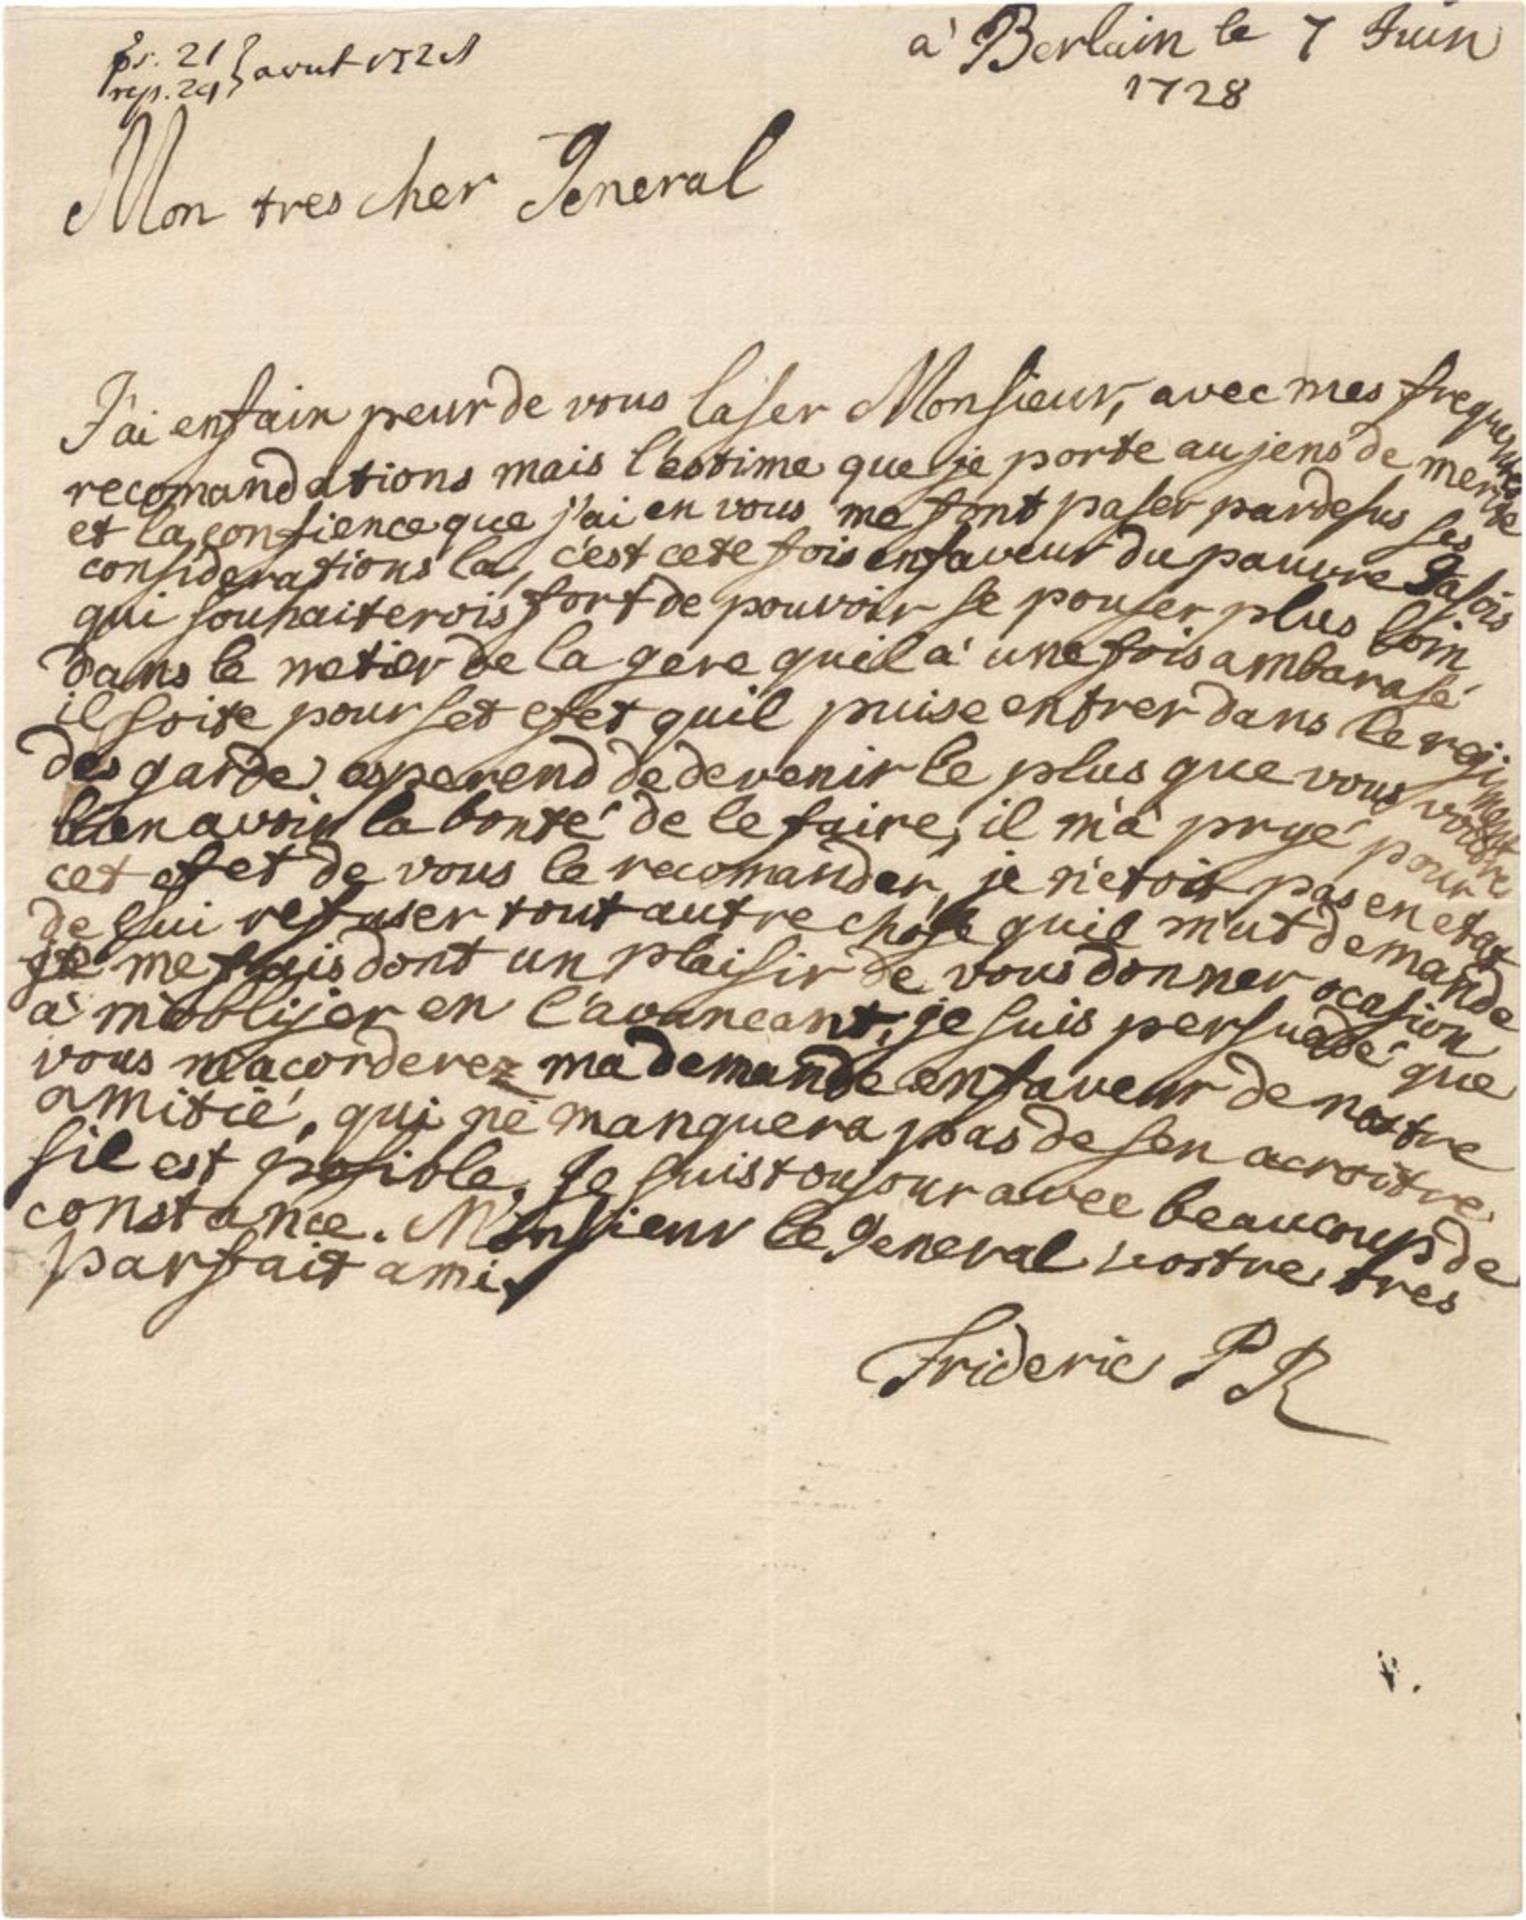 à Berlain le 7 Juin
1728
21
rep. 29 } aout 1728
Mon tres cher General
J'ai enfain peur de vous laser Monsieur, avec mes frequentes
recomandations mais l'estime que je porte au jens de merite
et la confience que j'ai en vous me font paser pardesus ses
considerations la, c'est cete fois enfaveur du pauvre
qui souhaiterois fort de pouvoir se pouser plus loin
dans le metier de la gere quil a' une fois ambarasé
il soite pour set efet quil puise entrer dans le rejiment
des garde esperend de devenir le plus que vous
bien avoir la bonté de le faire, il m'a pryé pour
cet efet de vous le recomander, je n'etois pas en etat
de lui refuser tout autre chose quil m'ut demande
je me fais dont un plaisir de vous donner ocasion
a m'oblijer en l'avancant, je suis persuadé que
vous m'acorderez ma demande enfaveur de nostre
amitié, qui ne manquera pas de sen acroitre
sil est posible, Je suis toujour avec beaucoup de
constance. Monsieur le General vostre tres
parfait ami
Frideric PR